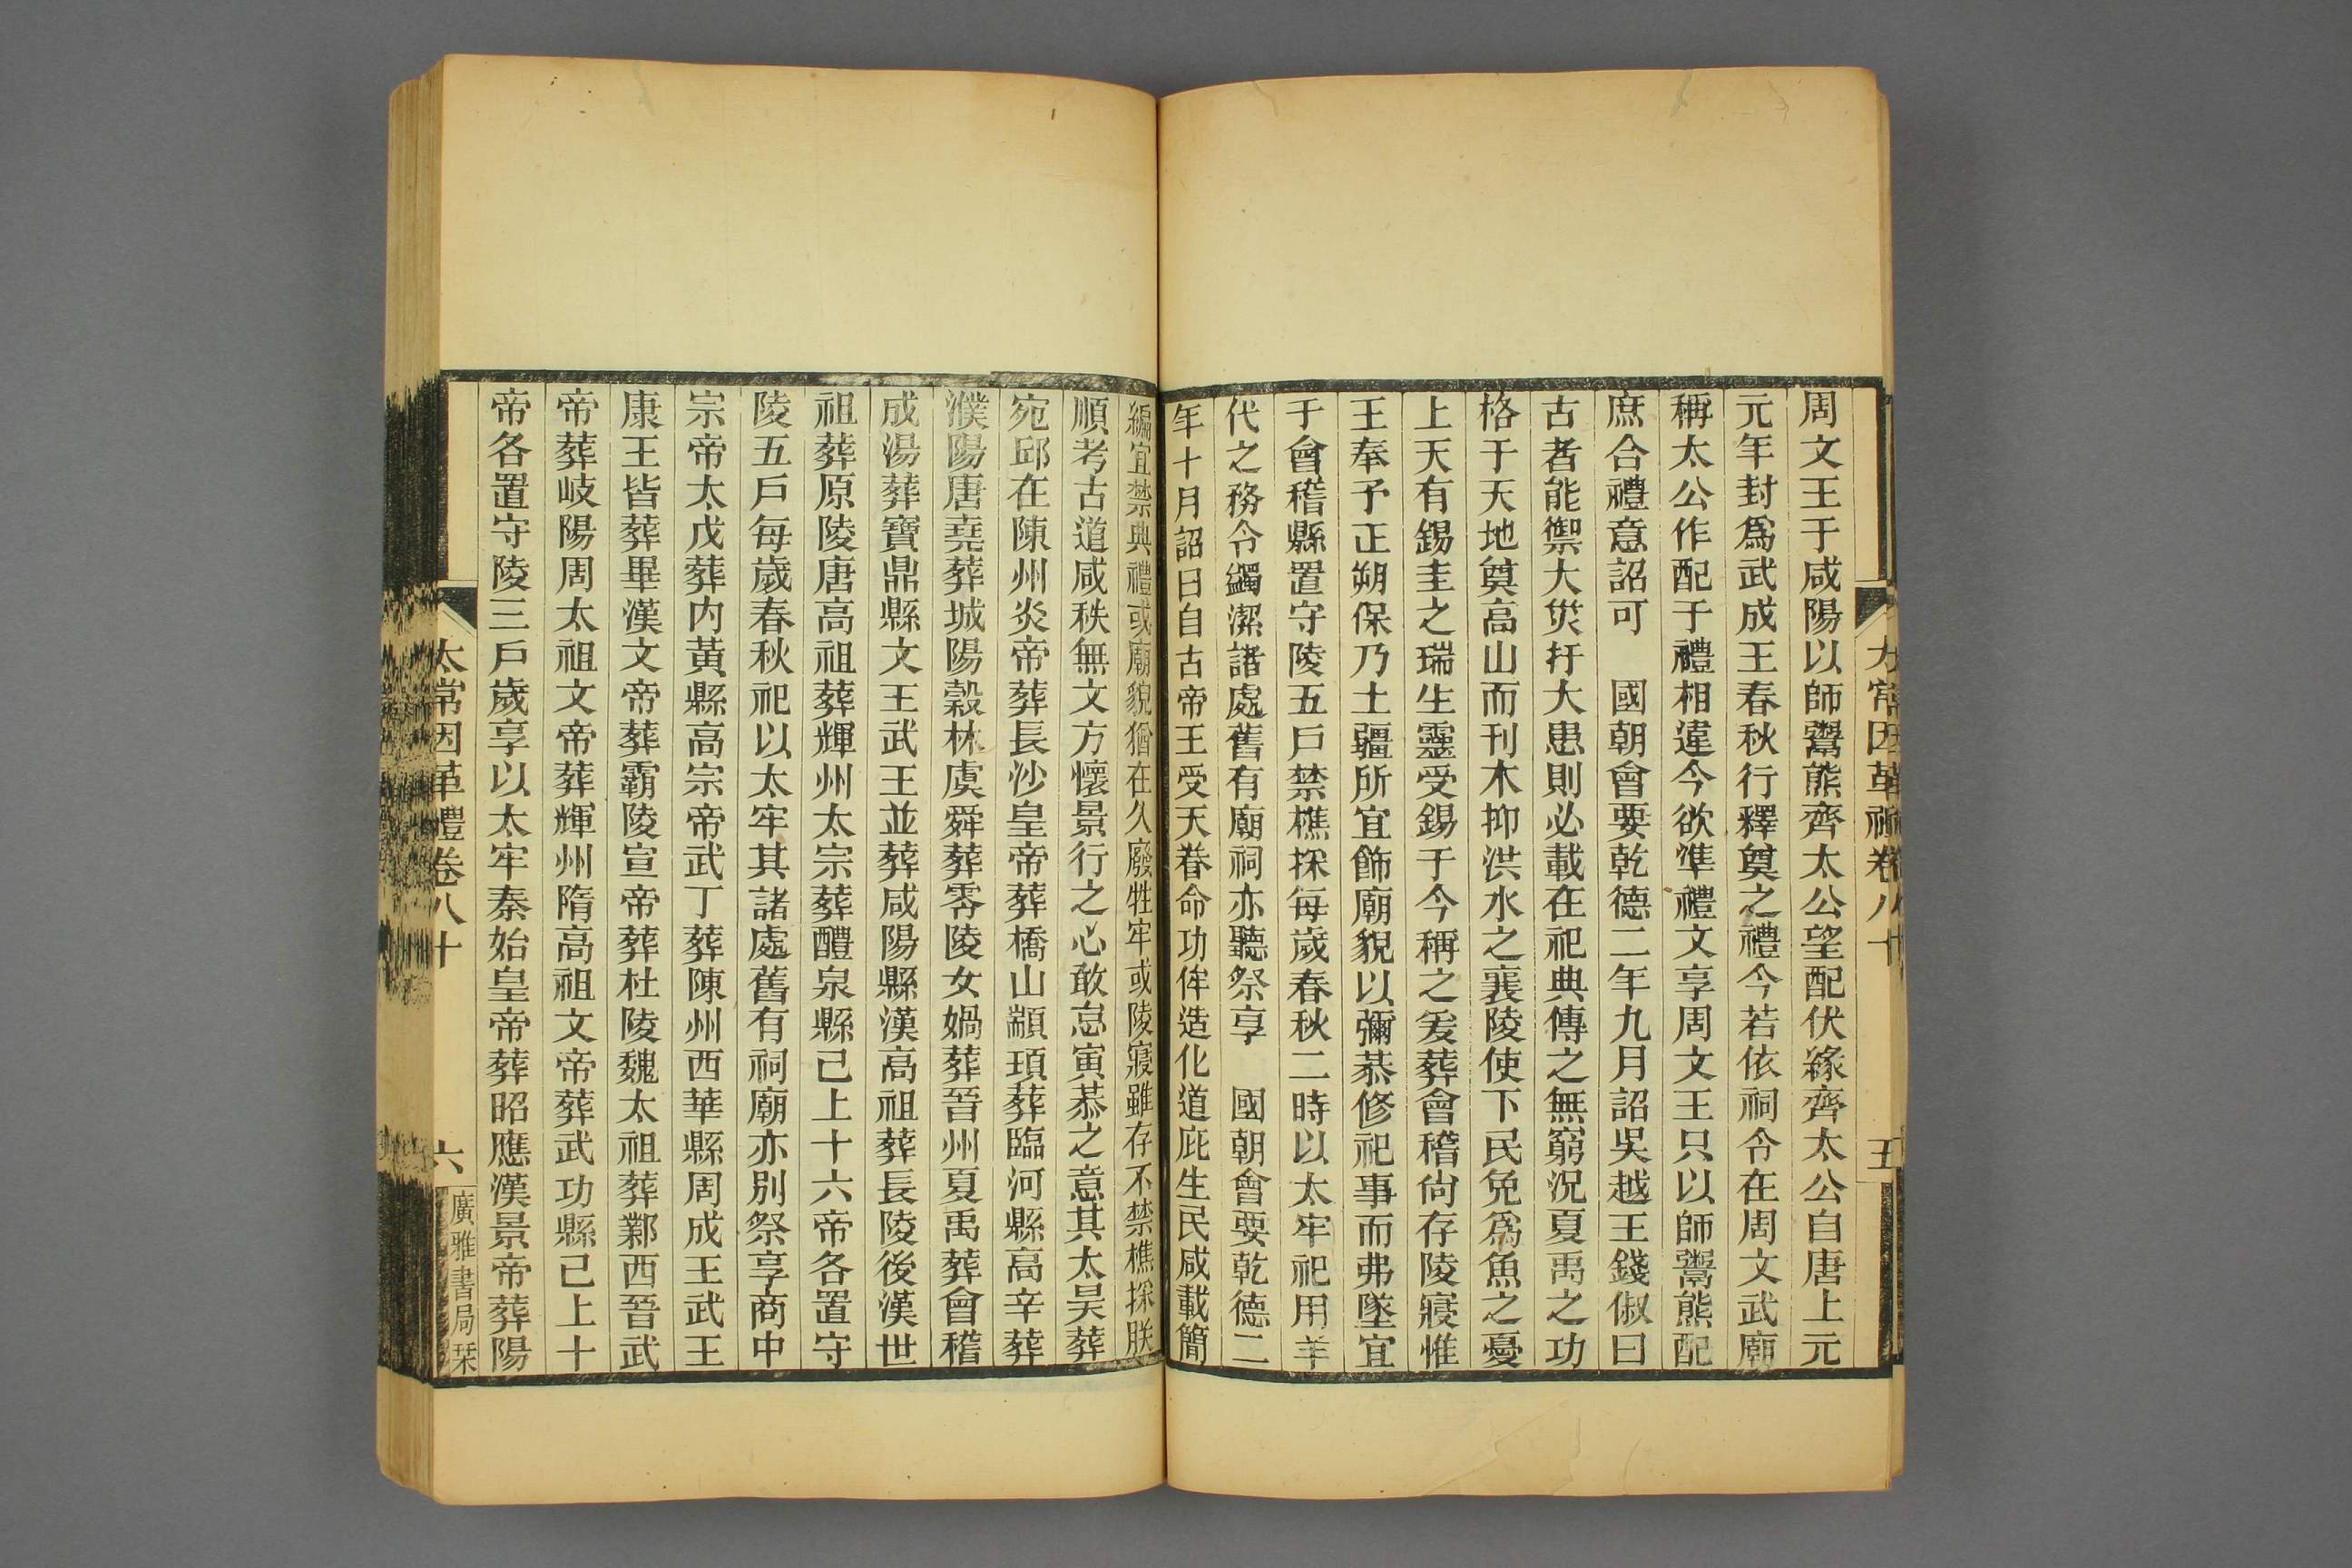 太常因革禮卷八十
五
周文王于咸陽以師鬻熊齊太公望配伏緣齊太公自唐上元
元年封爲武成王春秋行釋奠之禮今若依祠令在周文武廟
稱太公作配于禮相違今欲準禮文享周文王只以師鬻熊配
庶合禮意詔可　國朝會要乾德二年九月詔吳越王錢俶曰
古者能禦大災扞大患則必載在祀典傳之無窮況夏禹之功
格于天地奠高山而刊木抑洪水之襄陵使下民免爲魚之憂
上天有錫圭之瑞生靈受錫于今稱之爰葬會稽尙存陵寢惟
王奉予正朔保乃土疆所宜飾廟貌以彌恭修祀事而弗墜宜
于會稽縣置守陵五戶禁樵採每歲春秋二時以太牢祀用羊
代之務令蠲潔諸處舊有廟祠亦聽祭享　國朝會要乾德二
年十月詔曰自古帝王受天眷命功侔造化道庇生民咸載簡
編宜禁典禮或廟貌猶在久廢牲牢或陵寢雖存不禁樵採朕
順考古道咸秩無文方懷景行之心敢怠寅恭之意其太昊葬
宛邱在陳州炎帝葬長沙皇帝葬橋山顓頊葬臨河縣高辛葬
濮陽唐堯葬城陽穀林虞舜葬零陵女媧葬晉州夏禹葬會稽
成湯葬寶鼎縣文王武王並葬咸陽縣漢高祖葬長陵後漢世
祖葬原陵唐高祖葬輝州太宗葬醴泉縣已上十六帝各置守
陵五戶每歲春秋祀以太牢其諸處舊有祠廟亦別祭享商中
宗帝太戊葬内黃縣高宗帝武丁葬陳州西華縣周成王武王
康王皆葬畢漢文帝葬霸陵宣帝葬杜陵魏太祖葬鄴西晉武
帝葬岐陽周太祖文帝葬輝州隋高祖文帝葬武功縣已上十
帝各置守陵三戶歲享以太牢秦始皇帝葬昭應漢景帝葬陽
太常因革禮卷八十
六
廣雅書局栞